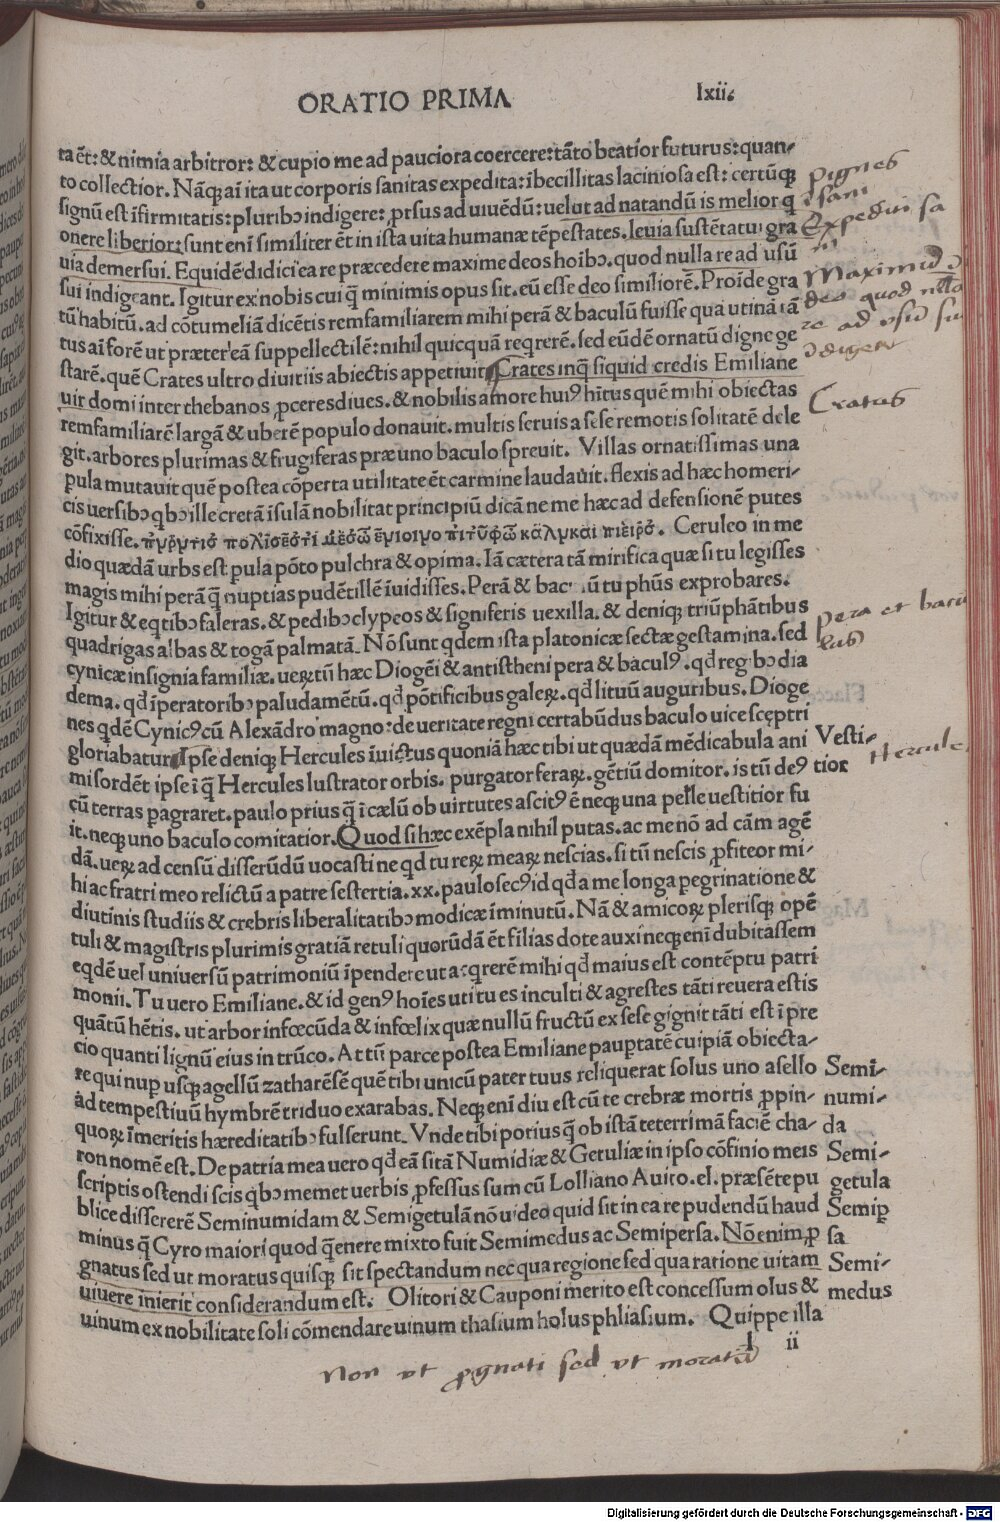 ORATIO PRIMA
lxii.
ta ēt: & nimia arbitror: & cupio me ad pauciora coercere: tāto beatior futurus: quan-
to collectior. Nāq; ai ita ut corporis sanitas expedita: ībecillitas laciniosa est: certūq;
signū est īfirmitatis: pluribꝯ indigere: ꝓrsus ad uiuēdū: uelut ad natandū is melior q
onere liberior: sunt enī similiter ēt in ista uita humanæ tēpestates. leuia sustētatui gra
uia demersui. Equidē didici ea re præcedere maxime deos hoibꝯ. quod nulla re ad usū
sui indigeant. Igitur ex nobis cui q̄ minimis opus sit. eū esse deo similiorē. Proīde gra
tū habitū. ad cōtumeliā dicētis remfamiliarem mihi perā & baculū fuisse qua utinā iā
tus ai forē ut præter eā suppellectilē: nihil quicquā reqrerē. sed eūdē ornatū digne ge
starē. quē Crates ultro diuitiis abiectis appetiuit Crates inq̄ siquid credis Emiliane
uir domi inter thebanos ꝓceres diues. & nobilis amore huiꝰ hītus quē mihi obiectas
remfamiliarē largā & uberē populo donauit. multis seruis a sese remotis solitatē dele
git. arbores plurimas & frugiferas præ uno baculo spreuit. Villas ornatissimas una
ꝑula mutauit quē postea cōperta utilitate ēt carmine laudauit. flexis ad hæc homeri-
cis uersibꝯ qbꝯ ille cretā īsulā nobilitat principiū dicā ne me hæc ad defensionē putes
cōfixisse. Ceruleo in me
dio quædā urbs est ꝑula pōto pulchra & opima. Iā cætera tā mirifica quæ si tu legisses
magis mihi perā q̄ nuptias pudētillē īuidisses. Perā & bac ū tu phūs exprobares.
Igitur & eqtibꝯ faleras. & pedibꝯ clypeos & signiferis uexilla. & deniq; triūphātibus
quadrigas albas & togā palmatā. Nō sunt qdem ista platonicæ sectæ gestamina. sed
cynicæ insignia familiæ. uerꝝ tū hæc Diogēi & antistheni pera & baculꝰ. qd̄ regibꝯ dia
dema. qd̄ īperatoribꝯ paludamētū. qd̄ pōtificibus galerꝝ. qd̄ lituū auguribus. Dioge
nes qdē Cynicꝰ cū Alexādro magno: de ueritate regni certabūdus baculo uice sceptri
gloriabatur Ipse deniq; Hercules īuictus quoniā hæc tibi ut quædā mēdicabula ani
mi sordēt ipse īq̄ Hercules lustrator orbis. purgator ferarꝝ. gētiū domitor. is tū deꝰ
cū terras pagraret. paulo prius q̄ ī cælū ob uirtutes ascitꝰ ē neq; una pelle uestitior fu
it. neq; uno baculo comitatior. Quod si hæc exēpla nihil putas. ac me nō ad cām agē
dā. uerꝝ ad censū disserūdū uocasti ne qd tu rerꝝ mearꝝ nescias. si tū nescis ꝓfiteor mi-
hi ac fratri meo relictū a patre sestertia. xx. paulo secꝰ id qd̄ a me longa peregrinatione &
diutinis studiis & crebris liberalitatibꝯ modicæ īminutū. Nā & amicorꝝ plerisq; opē
tuli & magistris plurimis gratiā retuli quorūdā ēt filias dote auxi neq; enī dubitassem
eqdē uel uniuersū patrimoniū īpendere ut acqrerē mihi qd̄ maius est contēptu patri
monii. Tu uero Emiliane. & id genꝰ hoīes uti tu es inculti & agrestes tāti reuera estis
quātū hētis. ut arbor infœcūda & infœlix quæ nullū fructū ex sese gignit tāti est ī pre
cio quanti lignū eius in trūco. At tū parce postea Emiliane pauꝑtatē cuipiā obiecta-
re qui nup usq; agellū zatharēsē quē tibi unicū pater tuus reliquerat solus uno asello
ad tempestiuū hymbrē triduo exarabas. Neq; enī diu est cū te crebræ mortis ꝓpin-
quorꝝ īmeritis hæreditatibꝯ fulserunt. Vnde tibi potius q̄ ob istā teterrimā faciē cha-
ron nomē est. De patria mea uero qd̄ eā sitā Numidiæ & Getuliæ in ipso cōfinio meis
scriptis ostendi scis qbꝯ memet uerbis ꝓfessus sum cū Lolliano Auito. el. præsēte pu
blice dissererē Seminumidam & Semigetulā nō uideo quid sit in ea re pudendū haud
minus q̄ Cyro maiori quod q̄ enere mixto fuit Semimedus ac Semipersa. Nō enim ꝓ
gnatus sed ut moratus quisq; sit spectandum nec qua regione sed qua ratione uitam
uiuere inierit considerandum est. Olitori & Cauponi merito est concessum olus &
uinum ex nobilitate soli cōmendare uinum thasium holus phliasium. Quippe illa
l ii
Expedīn sa
Maximū
deo quod nlla
re ad usū su
Crates
pera et bacu
lus
Vesti-
tior
Hercule
Semi-
numi-
da
Semi-
getula
Semiꝑ
sa
Semi-
medus
Non ut ꝓgnati sed ut moratū
Digitalisierung gefördert durch die Deutsche Forschungsgemeinschaft - DFG